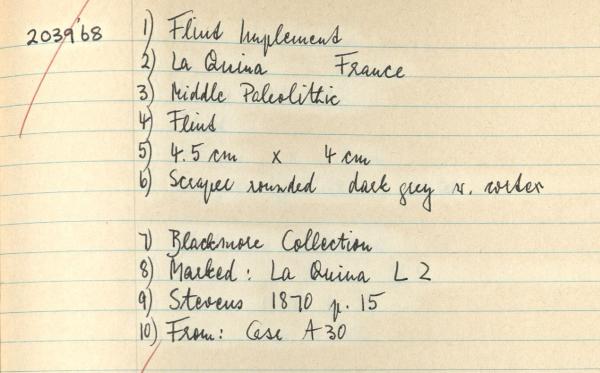 2039'68 1) Flint Implement
2) La Quina France
3) Middle Paleolithic
4) Flint
5) 4.5 cm x 4 cm
6) Scraper rounded dark grey w. cortex
7) Blackmore Collection
8) Marked: La Quina L 2
9) Stevens 1870 p. 15
10) From: Case A 30